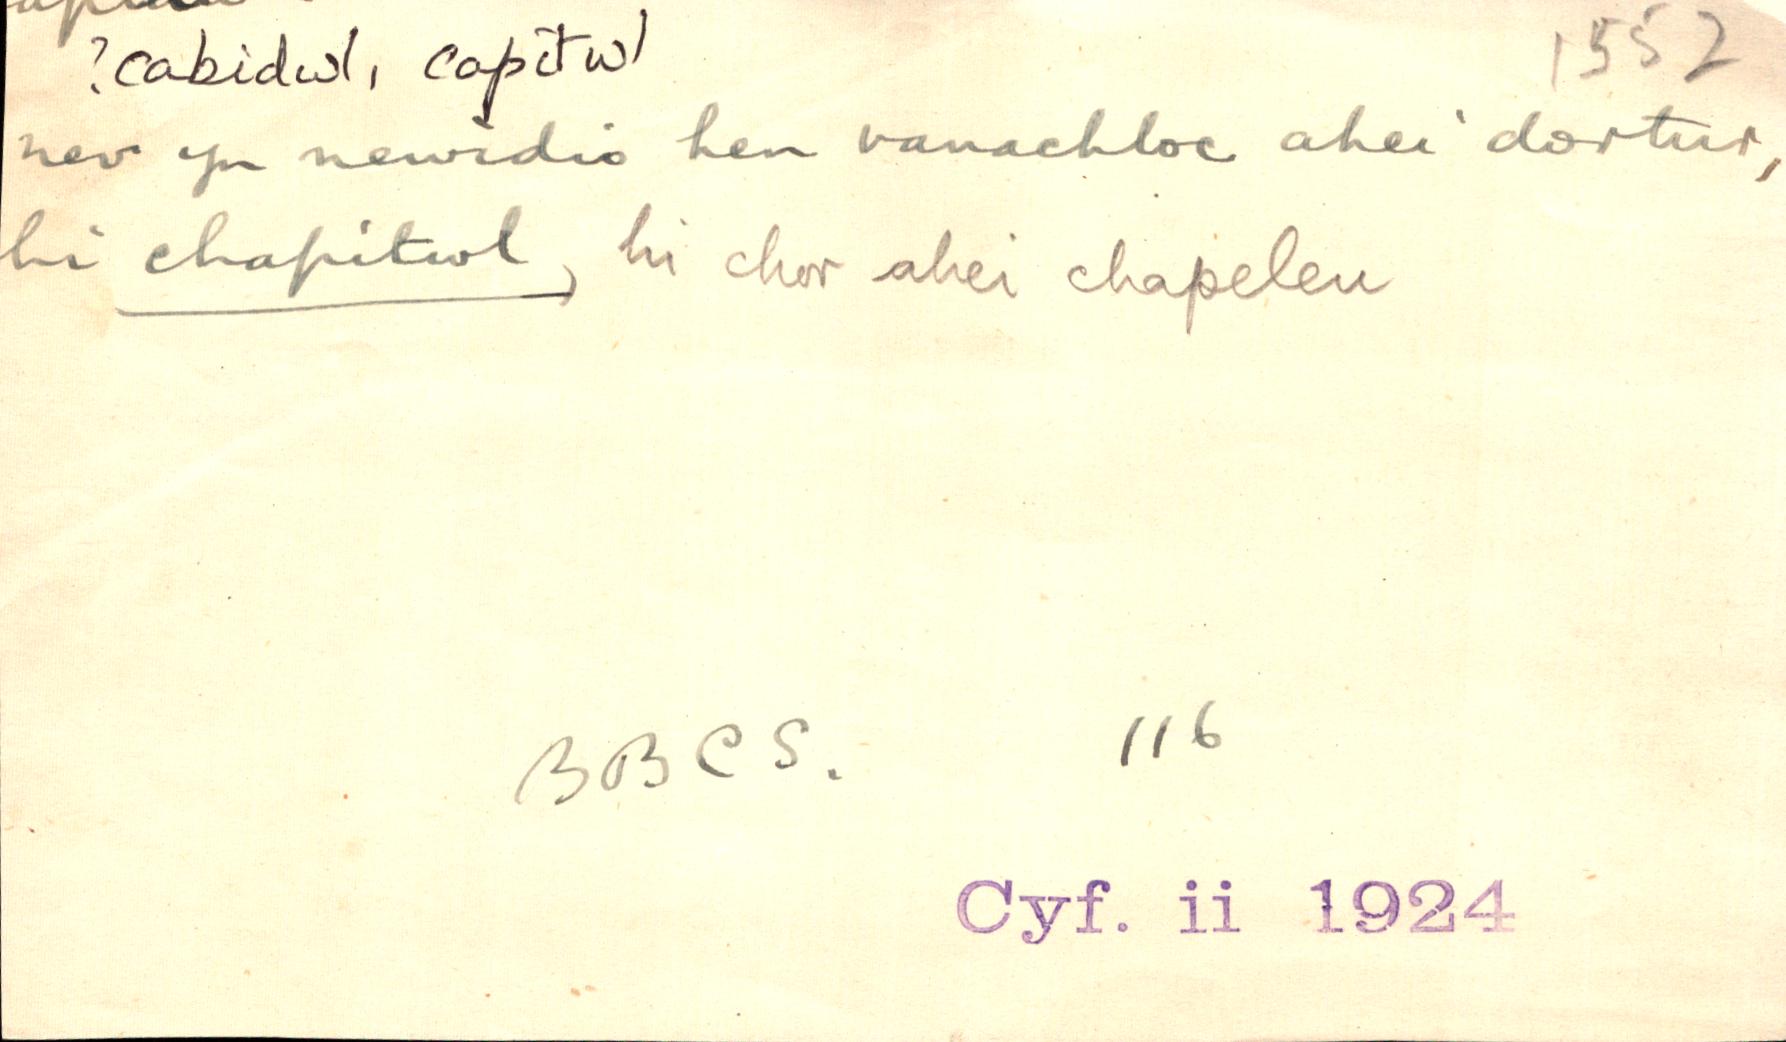 ?cabidwl, capitwl
1552
nev yn newidio hen vanachloc ahei dortur,
hi chapitwl, hi chor ahei chapeleu
BBCS. 116
Cyf. ii 1924